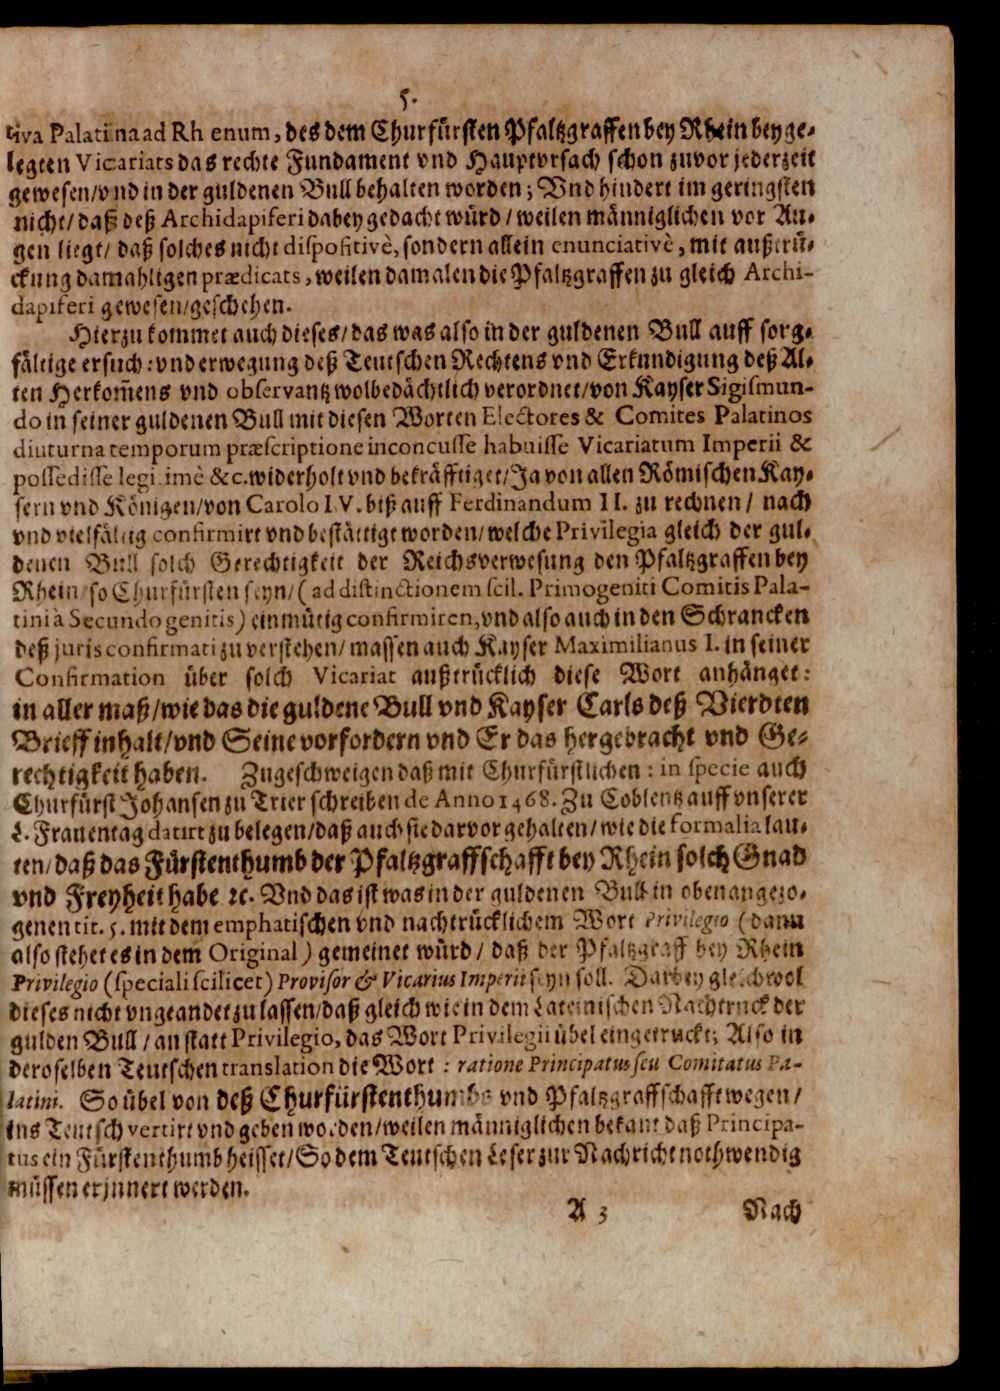 5.
tiva Palatina ad Rhenum, des dem Churfürsten Pfaltzgraffen bey Rhein beyge-
legten Vicariats das rechte Fundament vnd Hauptvrsach schon zuvor jederzeit
gewesen/vnd in der guldenen Bull behalten worden; Vnd hindert im geringsten
nicht/ daß deß Archidapiferi dabey gedacht würd/ weilen männiglichen vor Au-
gen liegt/ daß solches nicht dispositivè, sondern allein enunciativè, mit außtrü-
ckung damahligen prædicats, weilen damalen die Pfaltzgraffen zu gleich Archi-
dapiferi gewesen/geschehen.
Hierzu kommet auch dieses/das was also in der guldenen Bull auff sorg-
fältige ersuch: vnd erwegung deß Teutschen Rechtens vnd Erkundigung deß Al-
ten Herkom̃ens vnd observantz wolbedächtlich verordnet/von Kayser Sigismun-
do in seiner guldenen Bull mit diesen Worten Electores & Comites Palatinos
diuturna temporum præscriptione inconcusse habuisse Vicariatum Imperii &
possedisse legitimè &c. widerholt vnd bekräfftiget/Ja von allen Römischen Kay-
sern vnd Königen/von Carolo IV. biß auff Ferdinandum II. zu rechnen/ nach
vnd vielfältig confirmirt vnd bestättigt worden/welche Privilegia gleich der gul-
denen Bull solch Gerechtigkeit der Reichsverwesung den Pfaltzgraffen bey
Rhein/so Churfürsten seyn/(ad distinctionem scil. Primogeniti Comitis Pala-
tini à Secundo genitis) einmütig confirmiren, vnd also auch in den Schrancken
deß juris confirmati zu verstehen/ massen auch Kayser Maximilianus I. in seiner
Confirmation über solch Vicariat außtrücklich diese Wort anhänget:
in aller maß/wie das die guldene Bull vnd Kayser Carls deß Vierdten
Brieff inhalt/vnd Seine vorfordern vnd Er das hergebracht vnd Ge-
rechtigkeit haben. Zugeschweigen daß mit Churfürstlichen: in specie auch
Churfürst Johansen zu Trier schreiben de Anno 1468. Zu Coblentz auff vnserer
L. Frauentag datirt zu belegen/daß auch sie darvor gehalten/wie die formalia lau-
ten/daß das Fürstenthumb der Pfaltzgraffschafft bey Rhein solch Gnad
vnd Freyheit habe ꝛc. Vnd das ist was in der guldenen Bull in oben angezo-
genen tit. 5. mit dem emphatischen vnd nachtrücklichem Wort Privilegio (dann
also stehet es in dem Original) gemeinet würd/ daß der Pfaltzgraff bey Rhein
Privilegio (speciali scilicet) Provisor & Vicarius Imperii seyn soll. Darbey gleichwol
dieses nicht vngeandet zu lassen/daß gleich wie in dem Lateinischen Nachtruck der
gulden Bull/ an statt Privilegio, das Wort Privilegii übel eingetruckt; Also in
deroselben Teutschen translation die Wort: ratione Principatus seu Comitatus Pa-
latini. So übel von deß Churfürstenthumbs vnd Pfaltzgraffschafft wegen/
ins Teutsch vertirt vnd geben worden/weilen männiglichen bekant daß Principa-
tus ein Fürstenthumb heisset/So dem Teutschen Leser zur Nachricht nothwendig
müssen erjnnert werden.
A 3 Nach